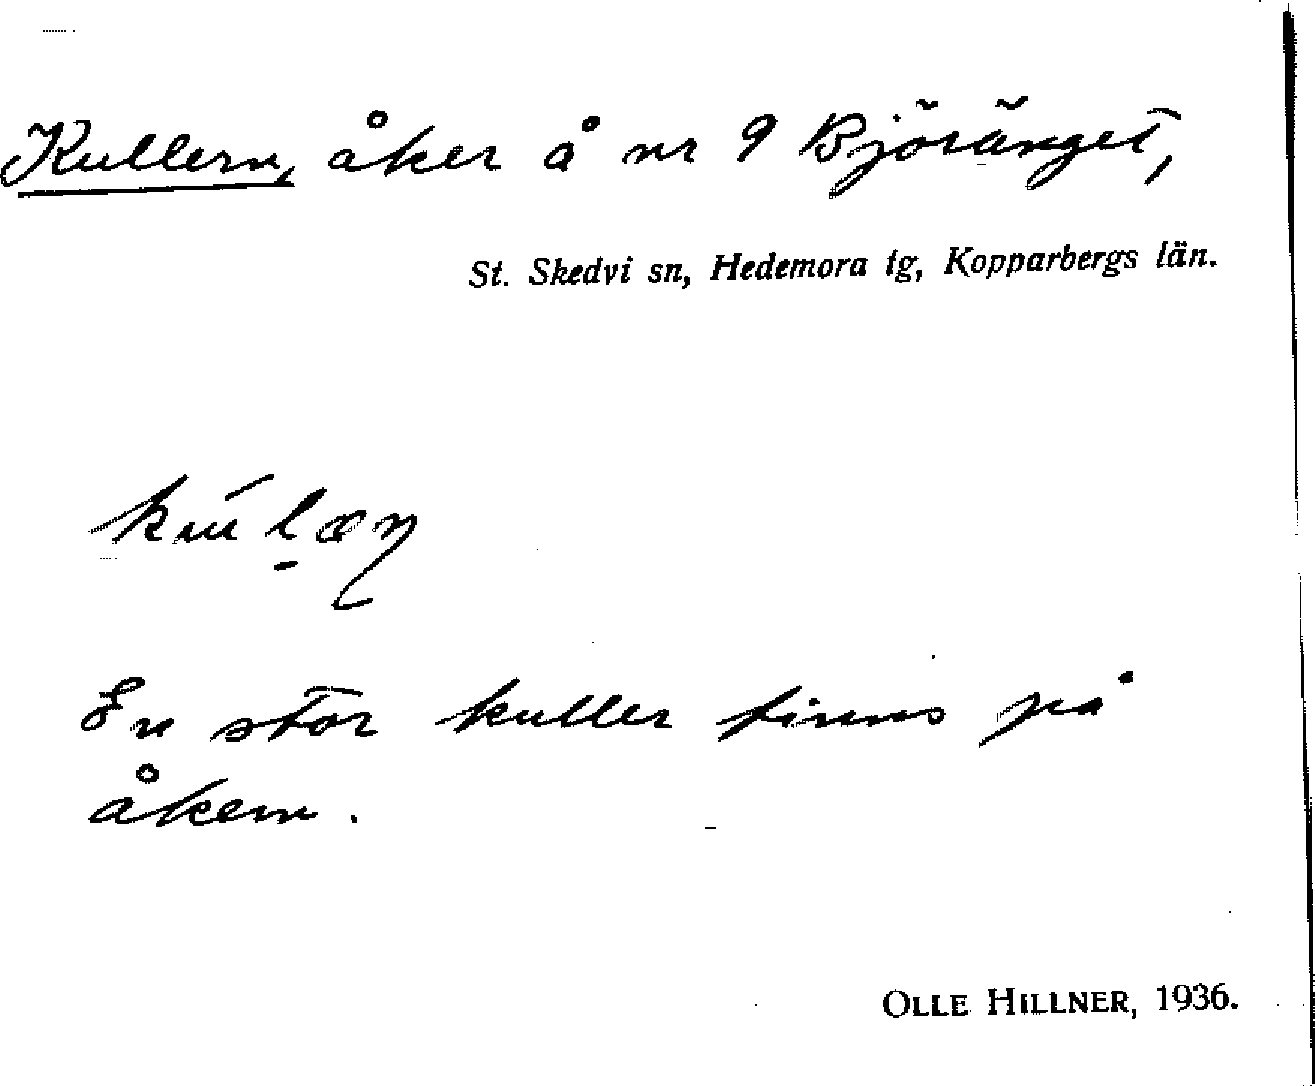 Kullern, åker å nr 9 Björänget,
St. Skedvi sn, Hedemora tg, Kopparbergs län.
En stor kuller finns på
åkern.
OLLE HILLNER, 1936.